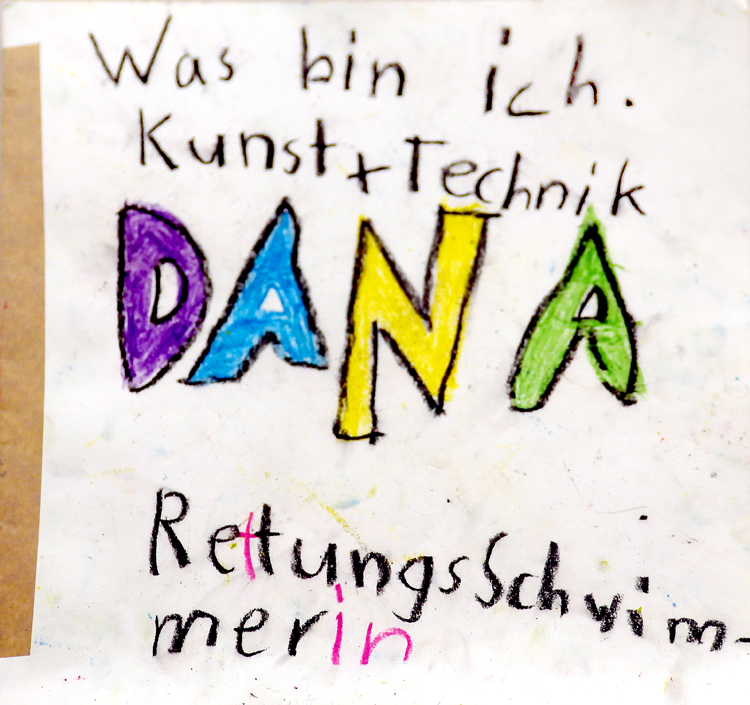 Was bin ich.
Kunst + Technik
DANA
RettungsSchwim-
merin